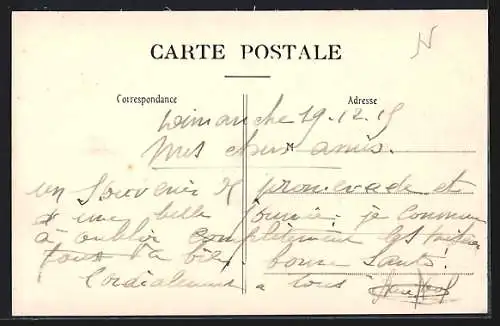 CARTE POSTALE
Correspondance
Adresse
Dimanche 19.12.15
mes chers amis.
un souvenir de promenade et
d'une belle journée: je commence
à oublier complètement les
tout va bien. bonne santé.
Cordialement à tous